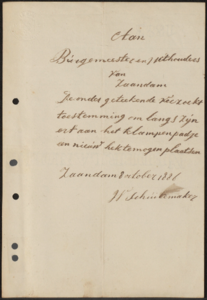 Aan
Burgemeester en Wethouders
van
Zaandam
De ondergeteekende verzoekt
toestemming om langs zijn
erf aan het Klampenpadje
een nieuw hek te mogen plaatsen
Zaandam 8 October 1881